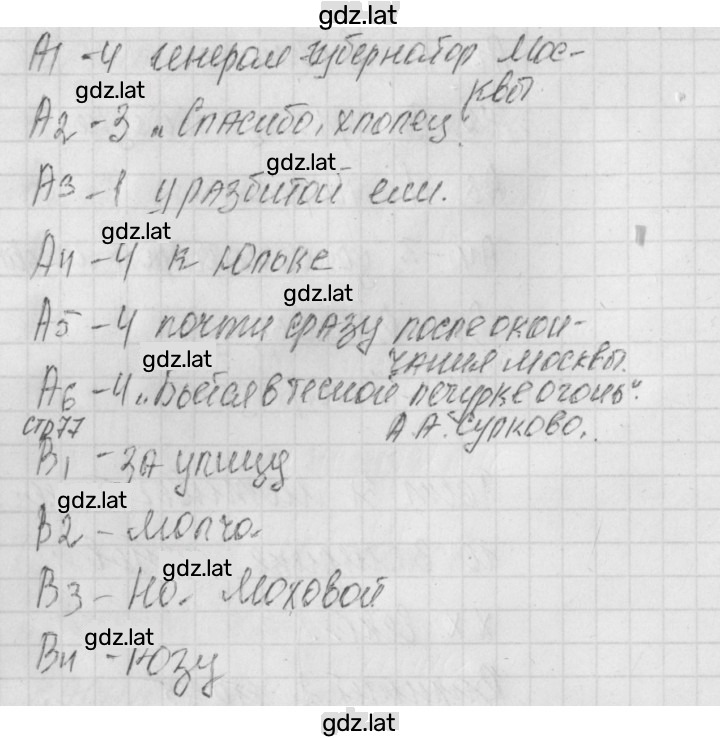 gdz.lat
А1 -4 генерал губернатор Мос-
квы
gdz.lat
А2 -3 „Спасибо, хлопец"
gdz.lat
А3 -1 у разбитой ели.
gdz.lat
А4 -4 к Юльке
gdz.lat
А5 -4 почти сразу после окон-
чания Москвы.
gdz.lat
А6 -4 „Бьется в тесной печурке огонь".
А А. Сурково.
стр 77
В1 - за улицу
gdz.lat
В2 - молчо.
gdz.lat
В3 - На. Моховой
gdz.lat
В4 - Юзу
gdz.lat